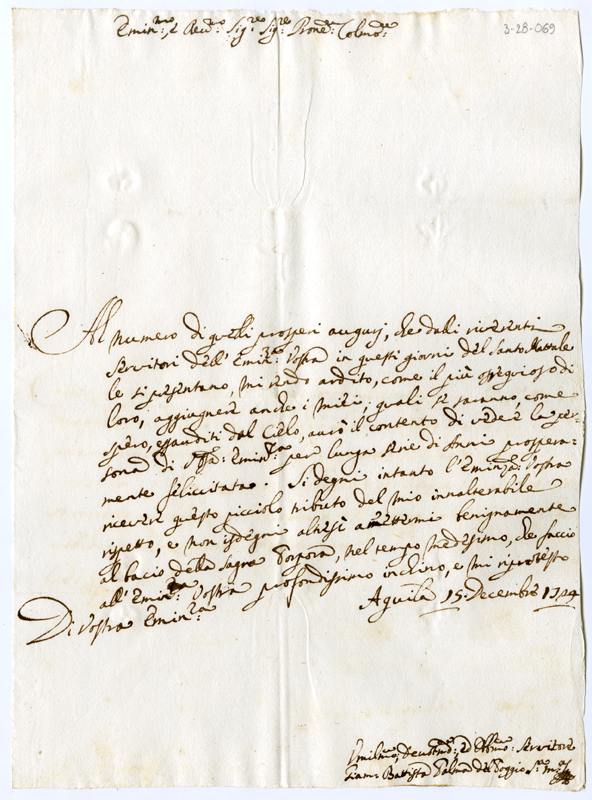 Emin.mo, e Rev.mo Sig.re Sig.re Pron.e Colmo
3-28-069
Al numero di quelli prosperi augurj, che dalli riverenti
servitori dell'Emin.za Vostra in questi giorni del Santo Natale
le si presentano, mi rendo ardito, come il più ossequioso di
loro, aggiugnere anche i miei; quali se saranno, come
spero, esauditi dal Cielo, avrò il contento di vedere la per-
sona di V.ra Emin.za per lunga serie di Anni prospera-
mente felicitata. Si degni intanto l'Eminza Vostra
ricevere questo picciolo tributo del mio innalterabile
rispetto, e non isdegni altresì ammettermi benignamente
al bacio della Sagra Porpora, nel tempo medesimo, che faccio
all'Emin.za Vostra profondissimo inchino, e mi riprotesto
Di Vostra Emin.za
Aquila 15 Decembre 1724
Umilmo, Devotmo: ed Obmo: Servitore
Giam Battista del Poggio